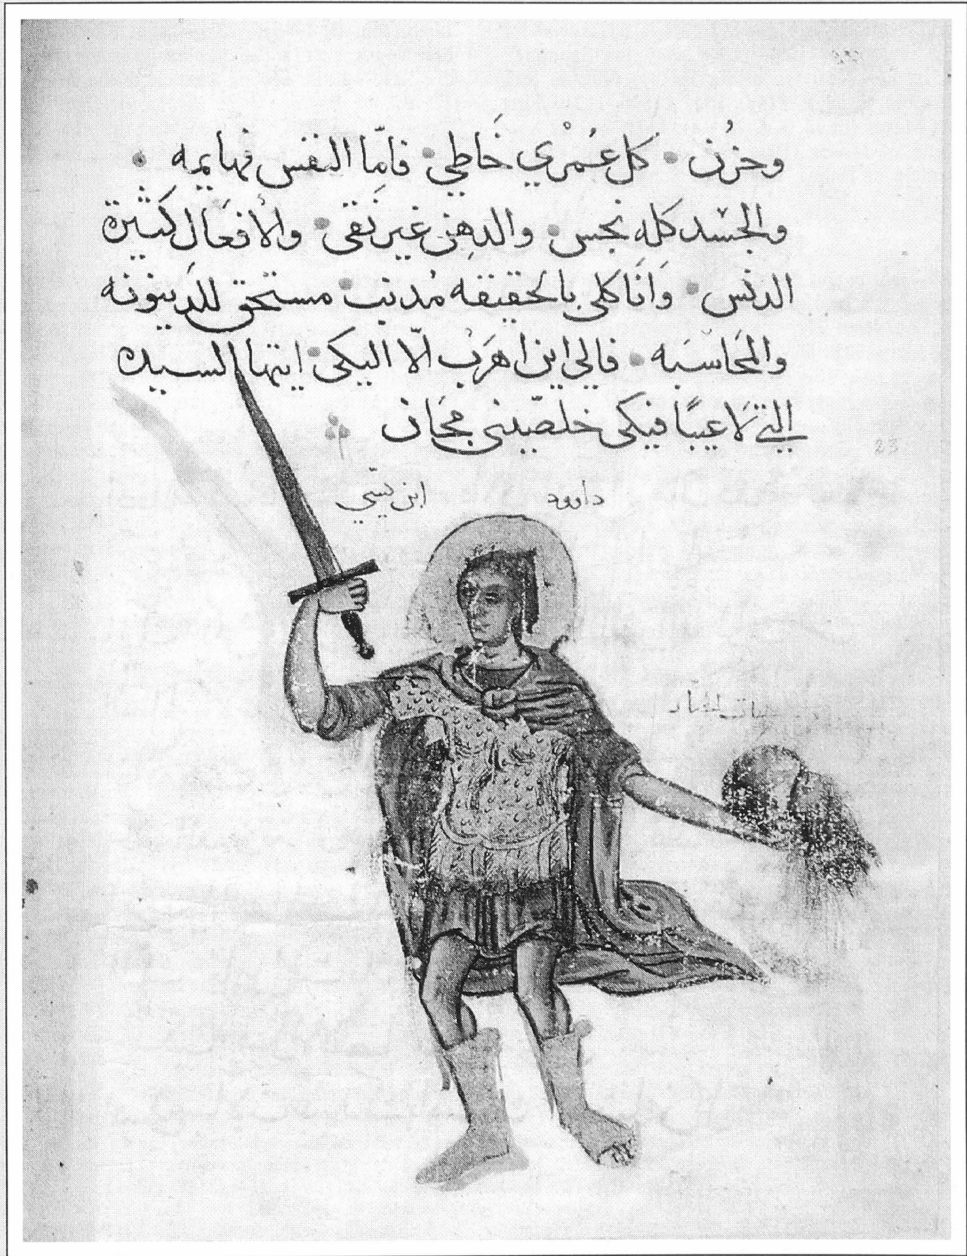 وحزن • كل عُمْري خَاطي • فامّا النفس فهايمه •
والجسد كله نجس • والدهن غير نقى • والافعال كثيرة
الدنس • وانَا كلى بالحقيقه مُدنب • مستحق للدينونه
والمحَاسَبه • فالى اين اهرَبْ الّا اليكى • ايتها السيده
التي لَا عيبًا فيكى خلصّينى مجَان
داوود ابن يسّي
23